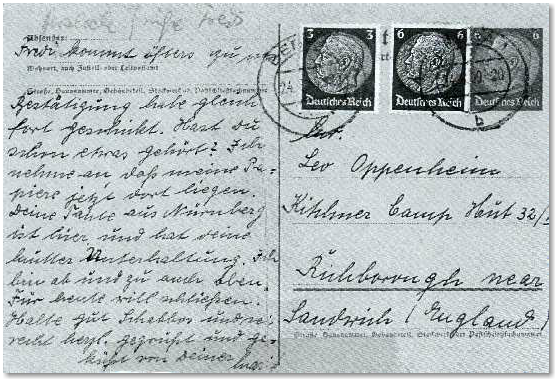 Absender:
Fredi kommt öfters zu
Wohnort, auch Zustell- oder Leitpostamt
Straße, Hausnummer, Gebäudeteil, Stockwerk od. Postschließfachnummer
Bestätigung habe gleich
fort geschickt. Hast du
schon etwas gehört? Ich
nehme an daß meine Pa-
piere jetzt dort liegen.
Deine Tante aus Nürnberg
ist hier und hat deine
Mutter Unterhaltung. Ich
bin ab und zu auch oben.
Für heute will schließen.
Halte gut Schabbos und sei
recht herzl. gegrüßt und ge-
küßt von deiner
3 3
Deutsches Reich
6 6
Deutsches Reich
6
Deutsches Reich
20
b
Leo Oppenheim
Kitchner Camp Hut 32/
Richborough near
Sandwich (England)
Straße, Hausnummer, Gebäudeteil, Stockwerk od. Postschließfachnummer